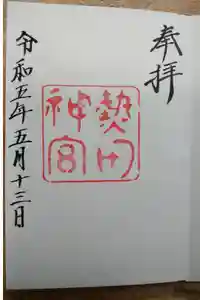 奉拝
熱田
神宮
令和五年五月十三日